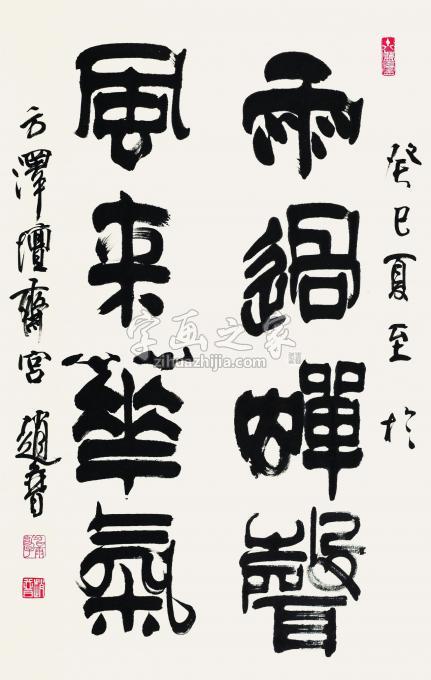 癸巳夏至於
雨過蟬聲
風來華氣
方澤壇齋宮 趙普
字画之家
zihuazhijia.com